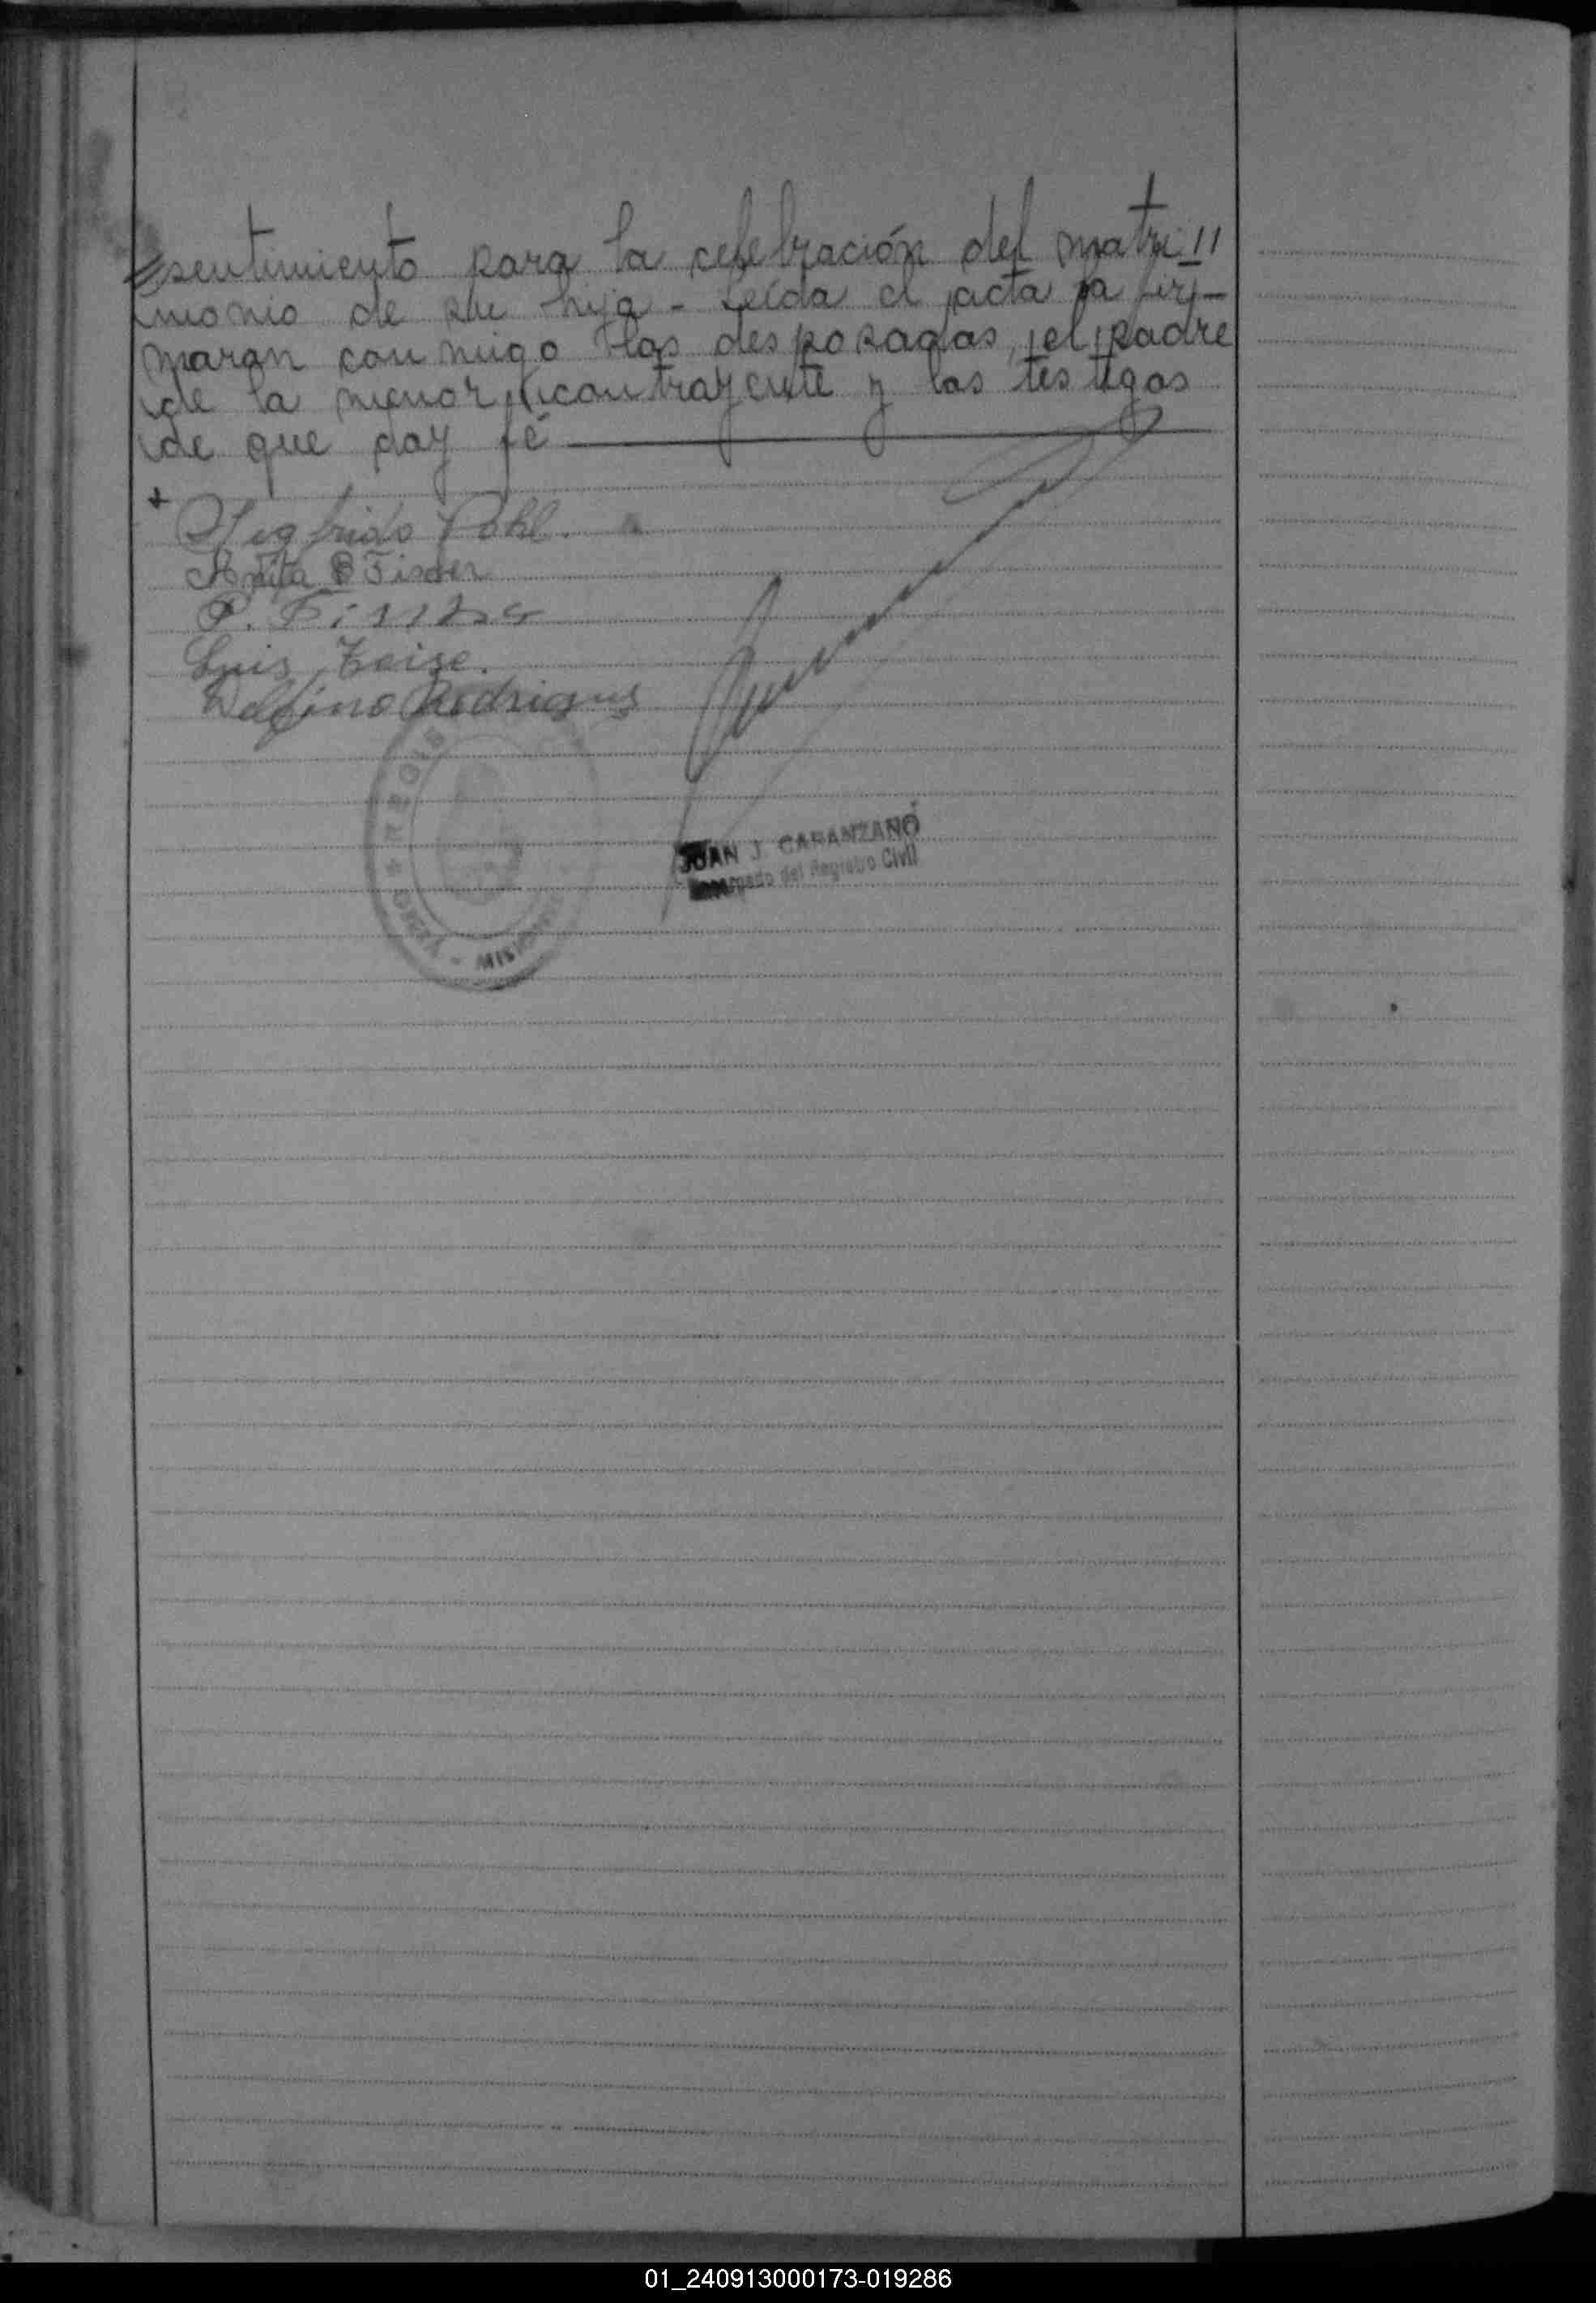 sentimiento para la celebración del matri //
monio de su hija - Leída el acta la fir-
maran conmigo los desposados, el padre
de la menor contrayente y los testigos
de que doy fé
Sigfrido Pohl.
Anita Fischer
P.
Luis
Delfino Rodrigues
REGIS
MISIONES
JUAN J. CARANZANO
Encargado del Registro Civil
01_240913000173-019286